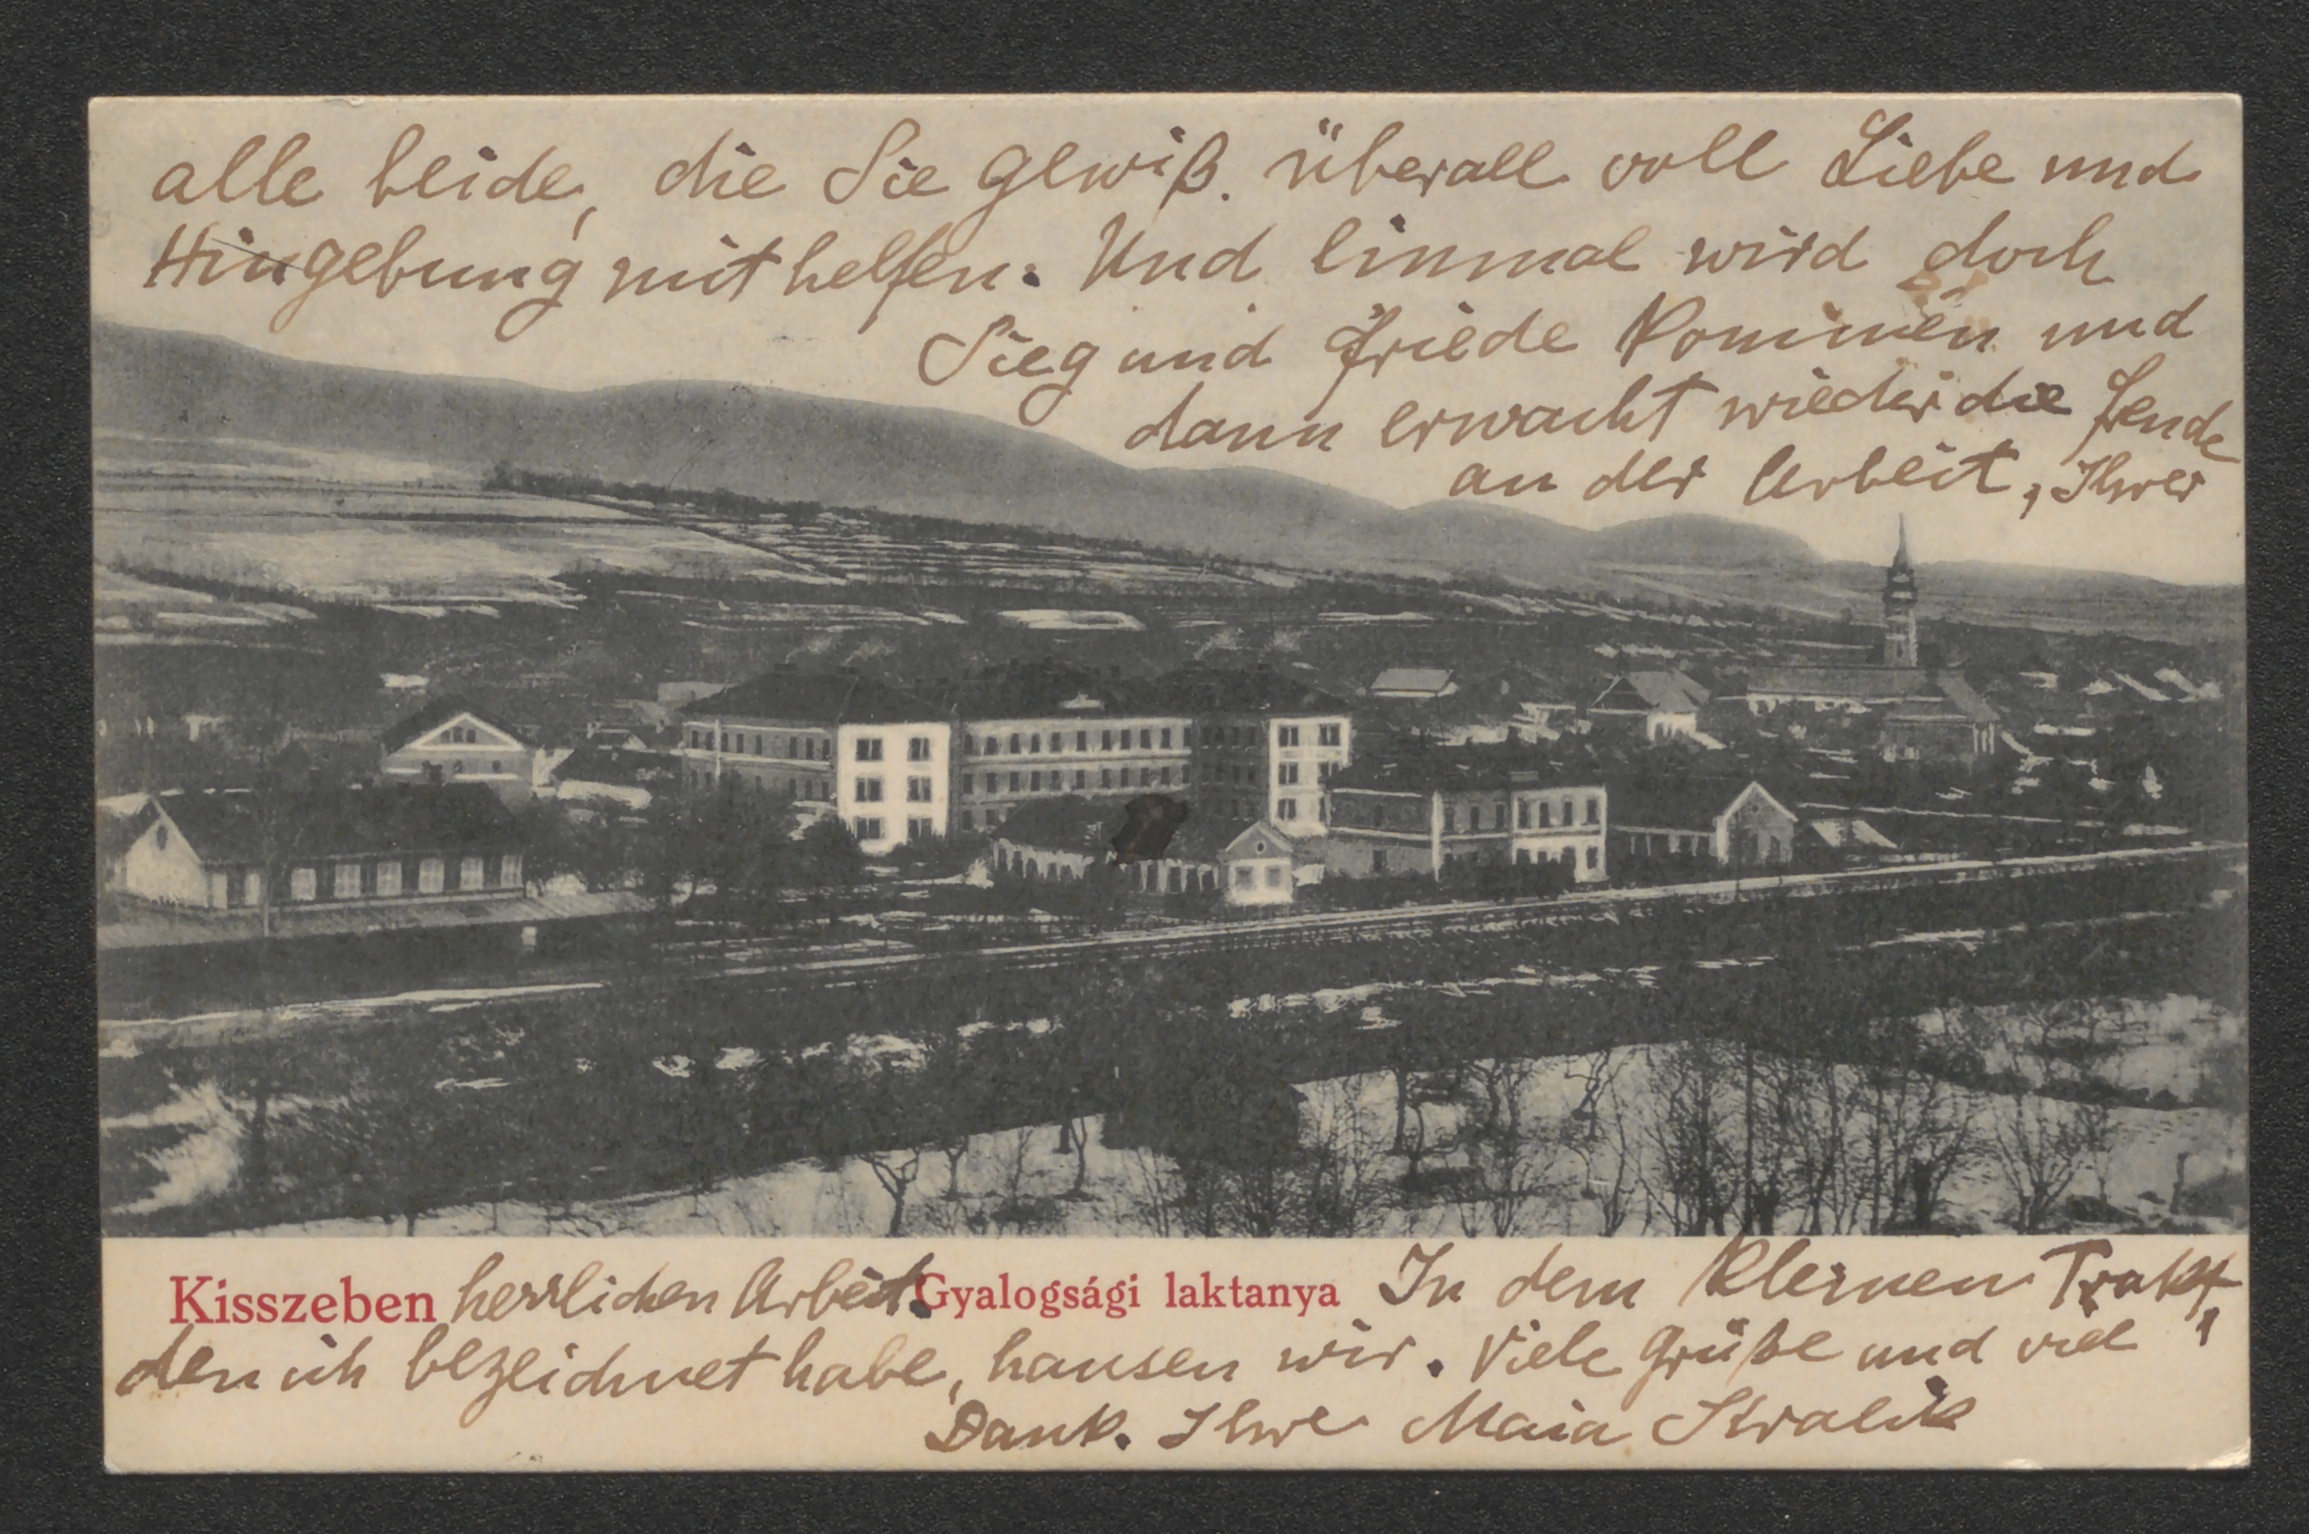 alle beide, die Sie gewiß überall voll Liebe und
Hingebung mit helfen. Und einmal wird doch
Sieg und Friede kommen und
dann erwacht wieder die
an der Arbeit, Ihrer
Kisszeben herrlichen Arbeit. Gyalogsági laktanya In dem kleinen Trakt,
den ich bezeichnet habe, hausen wir. Viele Grüße und viel
Dank. Ihre Maia Kralik